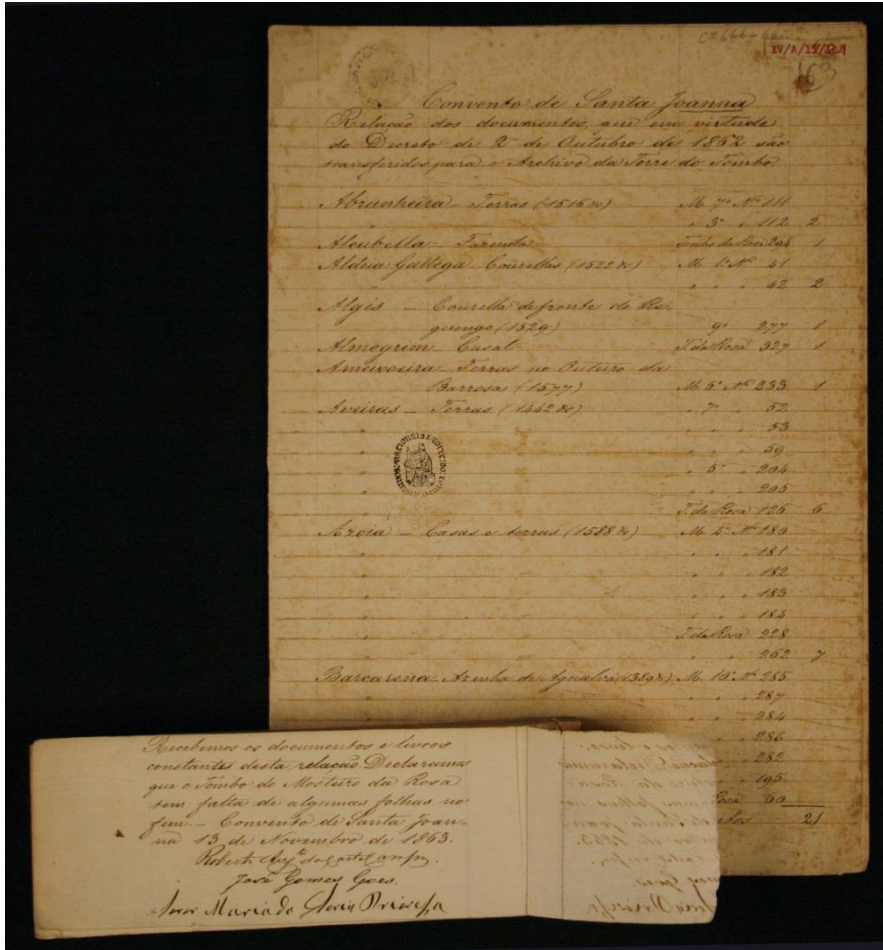 IV/A/15/
163
Convento de Santa Joanna
Relação dos documentos, que em virtude
do Decreto de 2 de Outubro de 1862 são
transferidos para o Archivo da Torre do Tombo.
Abrunheira - Terras (1515 &) M. 7º Nº 111
" 3º " 112 2
Alcubella - Fazenda Tombo da Rosa 294 1
Aldeia Gallega Courellas (1522 &) M. 1º Nº 41
" " 42 2
Algis - Courella defronte do Re-
guengo (1529) 9º 277 1
Almogrem - Casal T. da Rosa 327 1
Ameixoeira - Terras no Outeiro da
Barrosa (1577) M. 5º Nº 233 1
Aveiras - Terras (1442 &) " 7º " 52
" " " 53
" " " 59
" " 5º " 204
" " " 205
" T. da Rosa 126 6
Azoia - Casas e terras (1588 &) M. 5º Nº 180
" " " 181
" " " 182
" " " 183
" " " 184
" T. da Rosa 228
" " 262 7
Barcarena - Azenha de Agualva M. 10º Nº 285
" " 287
" " 284
" " 286
" " 282
" " 195
Rosa 60
21
Recebemos os documentos e livros
constantes desta relação. Declaramos
que o Tombo do Mosteiro da Rosa
tem falta de algumas folhas no
fim - Convento de Santa Joan-
na 13 de Novembro de 1863.
Roberto
José Gomes Goes.
Soror Maria da Gloria Prioresa